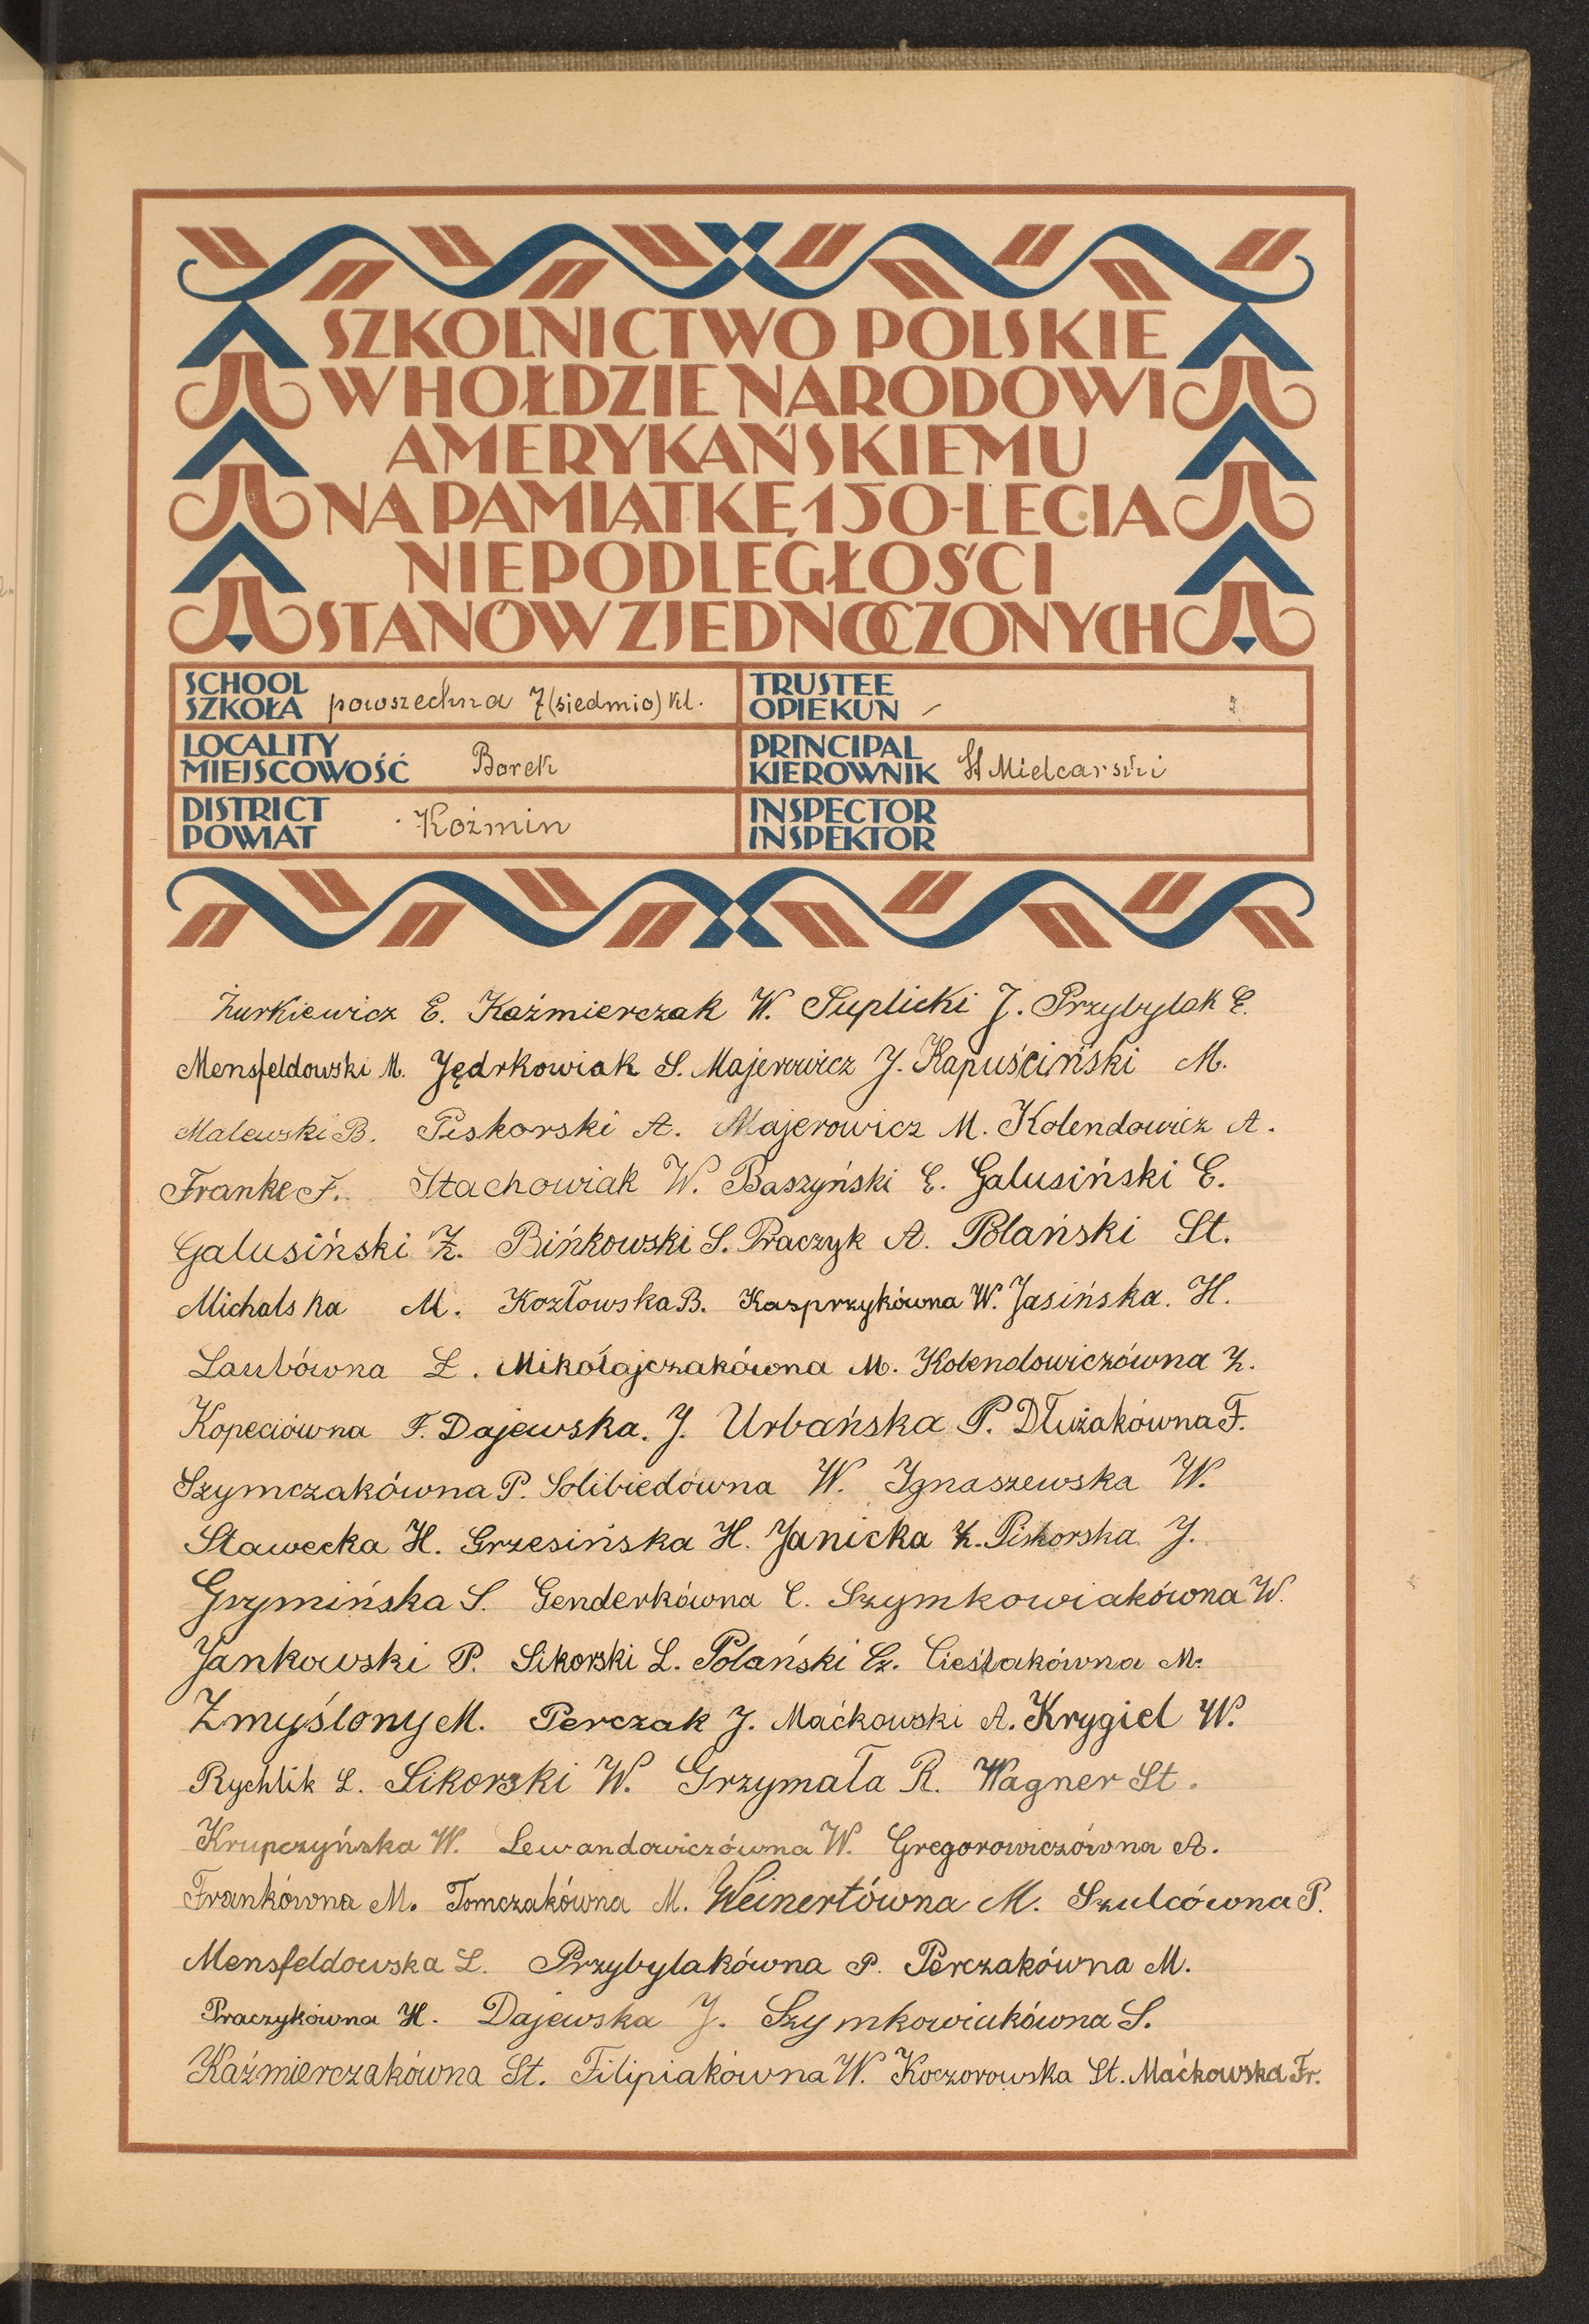 SZKOLNICTWO POLSKIE
W HOŁDZIE NARODOWI
AMERYKAŃSKIEMU
NA PAMIĄTKĘ 150-LECIA
NIEPODLEGŁOŚCI
STANÓW ZJEDNOCZONYCH
SCHOOL
SZKOŁA powszechna 7 (siedmio) kl.
TRUSTEE
OPIEKUN –
LOCALITY
MIEJSCOWOŚĆ Borek
PRINCIPAL
KIEROWNIK St Mielcarski
DISTRICT
POWIAT Koźmin
INSPECTOR
INSPEKTOR
Żurkiewicz E. Kaźmierczak W. Suplicki J. Przybylak E.
Mensfeldowski M. Jędrkowiak S. Majerowicz J. Kapuściński M.
Malewski B. Piskorski A. Majerowicz M. Kolendowicz A.
Franke F. Stachowiak W. Baszyński E. Galusiński E.
Galusiński Z. Bińkowski S. Praczyk A. Polański St.
Michalska M. Kozłowska B. Kasprzykówna W. Jasińska. H.
Laubówna Ł. Mikołajczakówna M. Kolendowiczówna Z.
Kopeciówna F. Dajewska. J. Urbańska P. Dłużakówna F.
Szymczakówna P. Solibiedówna W. Ignaszewska W.
Stawecka H. Grzesińska H. Janicka Z. Piskorska J.
Grymińska S. Genderkówna C. Szymkowiakówna W.
Jankowski P. Sikorski L. Polański Cz. Cieślakówna M.
Zmyślony M. Perczak J. Maćkowski A. Krygiel W.
Rychlik L. Sikorski W. Grzymała R. Wagner St.
Krupczyńska W. Lewandowiczówna W. Gregorowiczówna A.
Frankówna M. Tomczakówna M. Weinertówna M. Szulcówna P.
Mensfeldowska L. Przybylakówna P. Perczakówna M.
Praczykówna H. Dajewska J. Szymkowiakówna S.
Kaźmierczakówna St. Filipiakówna W. Koczorowska St. Maćkowska Fr.